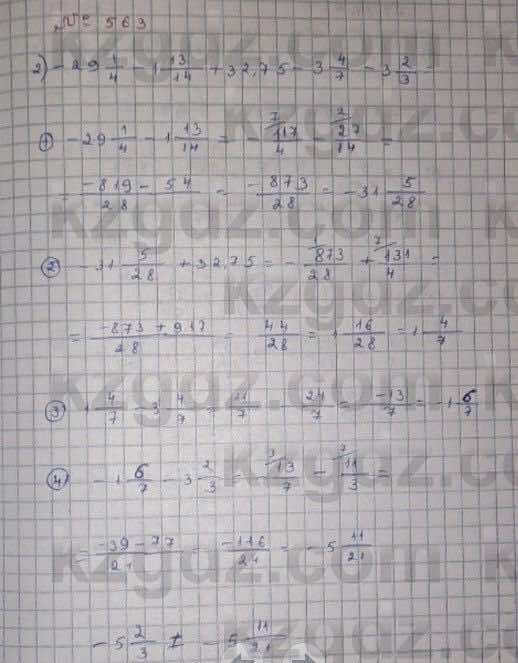 № 563
2) -29 1/4 - 1 13/14 + 32,75 - 3 4/7 - 3 2/3 =
① -29 1/4 - 1 13/14 = - 117/4 - 27/14 =
= -819 - 54/28 = -873/28 = -31 5/28
② -31 5/28 + 32,75 = - 873/28 + 131/4 =
= -873 + 917/28 = 44/28 = 1 16/28 = 1 4/7
③ 1 4/7 - 3 4/7 = 11/7 - 24/7 = -13/7 = -1 6/7
④ -1 6/7 - 3 2/3 - 13/7 - 11/3 =
= -39 - 77/21 = -116/21 = -5 11/21
-5 2/3 ± -5 11/21
kzgdz.com